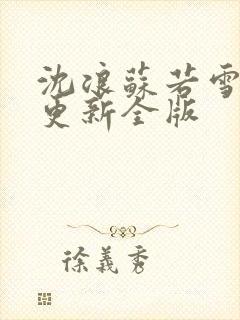 沈浪蘇若雪
更新全版
徐義秀